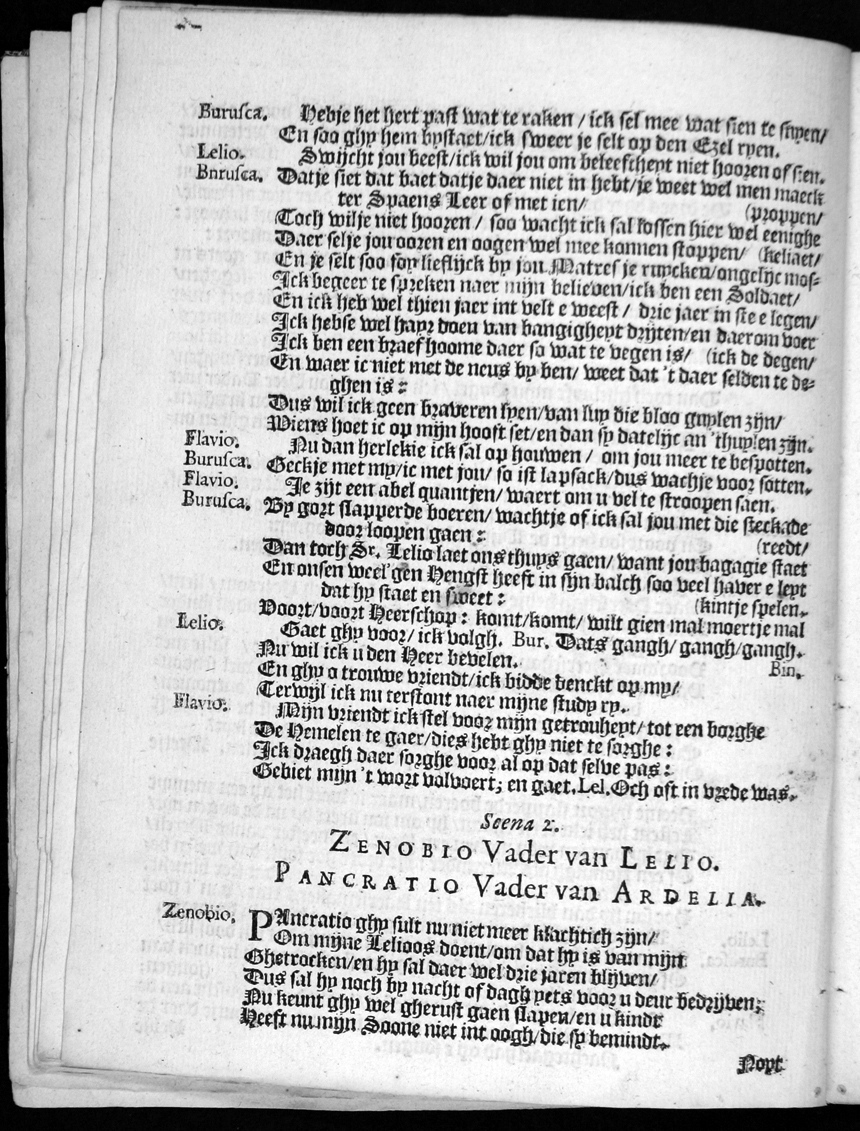 Burusca. Hebje het hert past wat te raken / ick sel mee wat sien te snyen/
En soo ghy hem bystaet/ick sweer je selt op den Ezel ryen.
Lelio. Swijcht jou beest/ick wil jou om beleeftheyt niet hooren of sien.
Bnrusca. Datje siet dat baet datje daer niet in hebt/je weet wel men maeck
ter Spaens Leer of met ien/ (proppen/
Toch wilje niet hooren / soo wacht ick sal lossen hier wel eenighe
Daer selje jou ooren en oogen wel mee konnen stoppen/ (keliaet/
En je selt soo soy lieflijck by jou Matres je ruycken/ongelijc mos-
Ick begeer te spreken naer mijn belieben/ick ben een Soldaet/
En ick heb wel thien jaer int velt e weest / drie jaer in stee legen/
Ick hebse wel hayr doen van bangigheyt drijten/en daerom voer
Ick ben een braef hoome daer so wat te vegen is/ (ick de degen/
En waer ic niet met de neus by ben/ weet dat 't daer selden te de-
ghen is:
Dus wil ick geen braveren lyen/van luy die bloo guylen zijn/
Wiens hoet ic op mijn hooft set/en dan sy datelijc an 'thuylen zijn.
Flavio. Nu dan herlekie ick sal op houwen / om jou meer te bespotten.
Burusca. Geckje met my/ic met jou/ so ist lapsack/dus wachje voor sotten.
Flavio. Je zijt een abel quantjen/ waert om u vel te stroopen saen.
Burusca. By gort slapperde boeren/ wachtje of ick sal jou met die steckade
door loopen gaen: (reedt/
Dan toch Sr. Lelio laet ons thuys gaen/ want jou bagagie staet
En onsen weel'gen Hengst heeft in sijn balch soo veel haver e leyt
dat hy staet en sweet: (kintje spelen.
Voort/voort Heerschop: komt/komt/ wilt gien mal moertje mal
Lelio. Gaet ghy voor/ick volgh. Bur. Dats gangh/gangh/gangh.
Nu wil ick u den Heer bevelen. Bin.
En ghy o trouwe vriendt/ick bidde denckt op my/
Terwijl ick nu terstont naer mijne study ry.
Flavio. Mijn vriendt ick stel voor mijn getrouheyt/ tot een borghe
De Hemelen te gaer/dies hebt ghy niet te sorghe:
Ick draegh daer sorghe voor al op dat selve pas:
Gebiet mijn 't wort volvoert; en gaet. Lel. Och oft in vrede was.
Scena 2.
ZENOBIO Vader van LELIO.
PANCRATIO Vader van ARDELIA.
Zenobio. PAncratio ghy sult nu niet meer klachtich zijn/
Om mijne Lelioos doent/om dat hy is van mijn
Ghetrocken/en hy sal daer wel drie jaren blijven/
Dus sal hy noch by nacht of dagh yets voor u deur bedrijven;
Nu keunt ghy wel gherust gaen slapen/en u kindt
Heeft nu mijn Soone niet int oogh/die sy bemindt.
Noyt